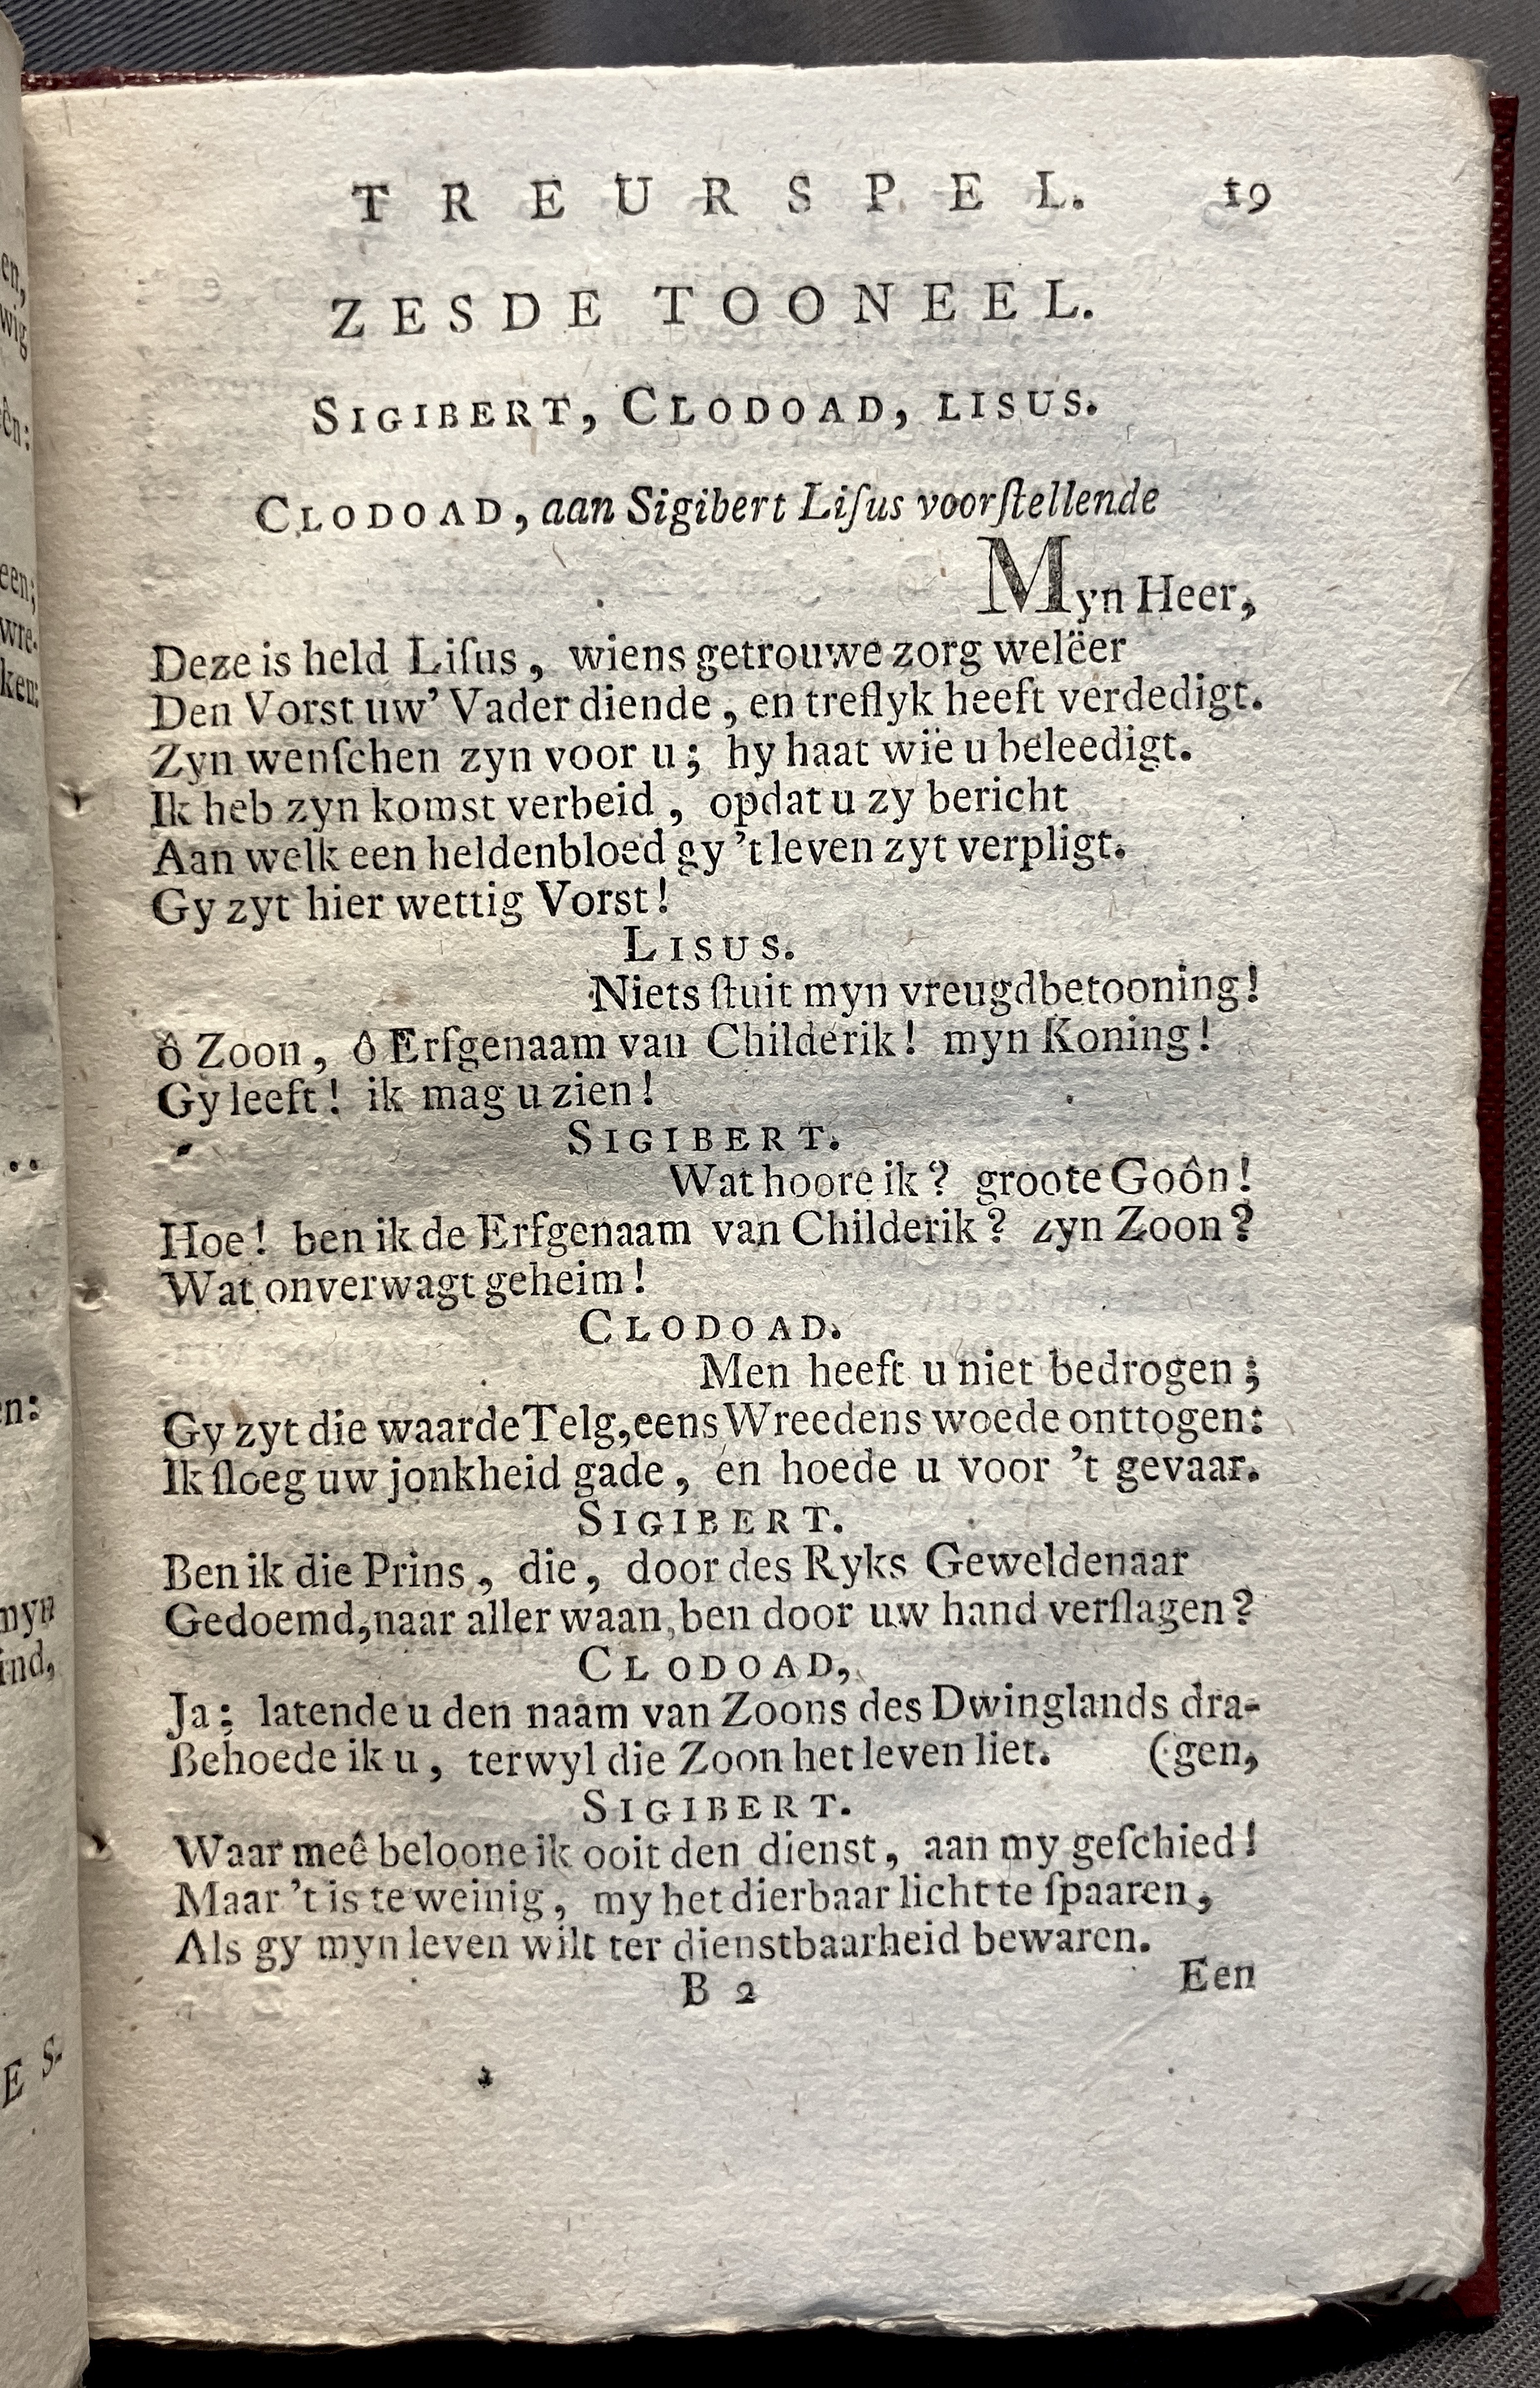 TREURSPEL. 19
ZESDE TOONEEL.
SIGIBERT, CLODOAD, LISUS.
CLODOAD, aan Sigibert Liſus voorſtellende
Myn Heer,
Deze is held Liſus, wiens getrouwe zorg welëer
Den Vorst uw' Vader diende, en treflyk heeft verdedigt.
Zyn wenſchen zyn voor u; hy haat wie u beleedigt.
Ik heb zyn komst verbeid, opdat u zy bericht
Aan welk een heldenbloed gy 't leven zyt verpligt.
Gy zyt hier wettig Vorst!
LISUS.
Niets ſtuit myn vreugdbetooning!
ô Zoon, ô Erfgenaam van Childerik! myn Koning!
Gy leeft! ik mag u zien!
SIGIBERT.
Wat hoore ik? groote Goôn!
Hoe! ben ik de Erfgenaam van Childerik? zyn Zoon?
Wat onverwagt geheim!
CLODOAD.
Men heeft u niet bedrogen;
Gy zyt die waarde Telg, eens Wreedens woede onttogen:
Ik ſloeg uw jonkheid gade, en hoede u voor 't gevaar.
SIGIBERT.
Ben ik die Prins, die, door des Ryks Geweldenaar
Gedoemd, naar aller waan, ben door uw hand verſlagen?
CLODOAD,
Ja; latende u den naam van Zoons des Dwinglands dra-
Behoede ik u, terwyl die Zoon het leven liet. (gen,
SIGIBERT.
Waar meê beloone ik ooit den dienst, aan my geſchied!
Maar 't is te weinig, my het dierbaar licht te ſpaaren,
Als gy myn leven wilt ter dienstbaarheid bewaren.
B 2 Een
en,
wig
ên:
een;
wre-
ken:
..
en:
myn
ind,
E S-